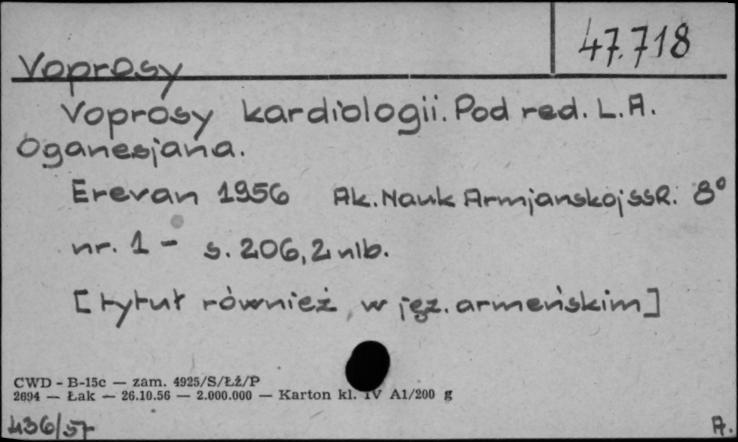 47.718
Voprosy
Voprosy kardiologii. Pod red. L.A.
Oganesjana.
Erevan 1956 Ak. Nauk Armjanskoj SSR. 8°
nr. 1 - s. 206, 2 nlb.
[tytuł również w jęz. armeńskim]
CWD - B-15c — zam. 4925/S/ŁŻ/P
2694 — Łak — 26.10.56 — 2.000.000 — Karton kl. IV A1/200 g
436/57 A.